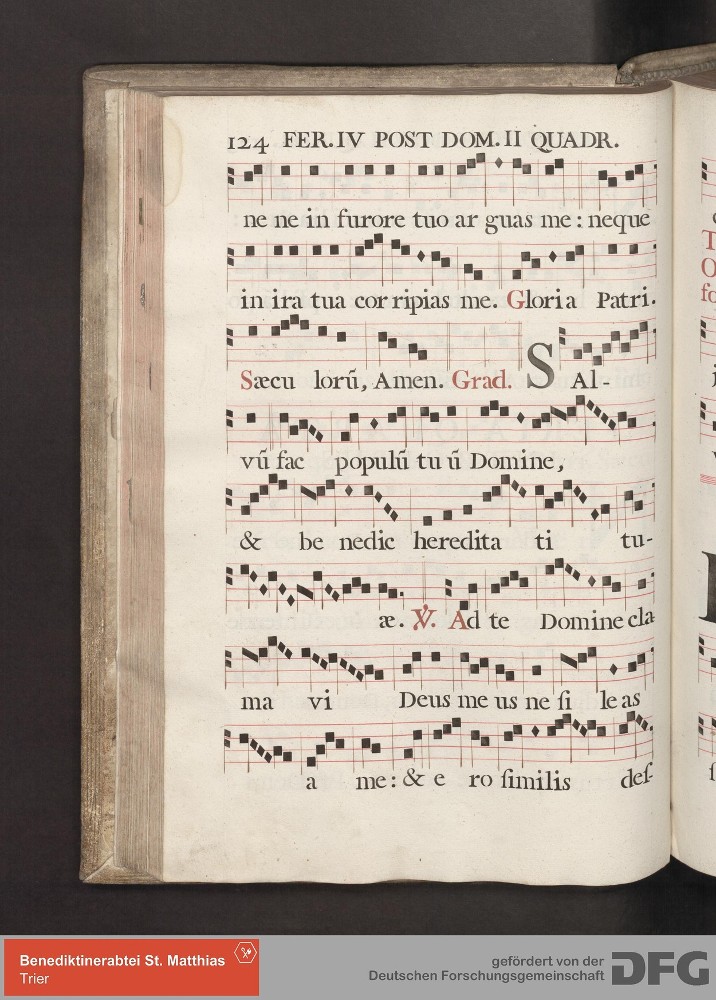 124 FER. IV POST DOM. II QUADR.
ne ne in furore tuo ar guas me: neque
in ira tua cor ripias me. Gloria Patri.
Sæcu lorũ, Amen. Grad. SAl-
vũ fac populũ tu ũ Domine,
& be nedic heredita ti tu-
æ. ℣. Ad te Domine cla-
ma vi Deus me us ne ſi le as
a me: & e ro ſimilis deſ-
Benediktinerabtei St. Matthias
Trier
gefördert von der
Deutschen Forschungsgemeinschaft DFG